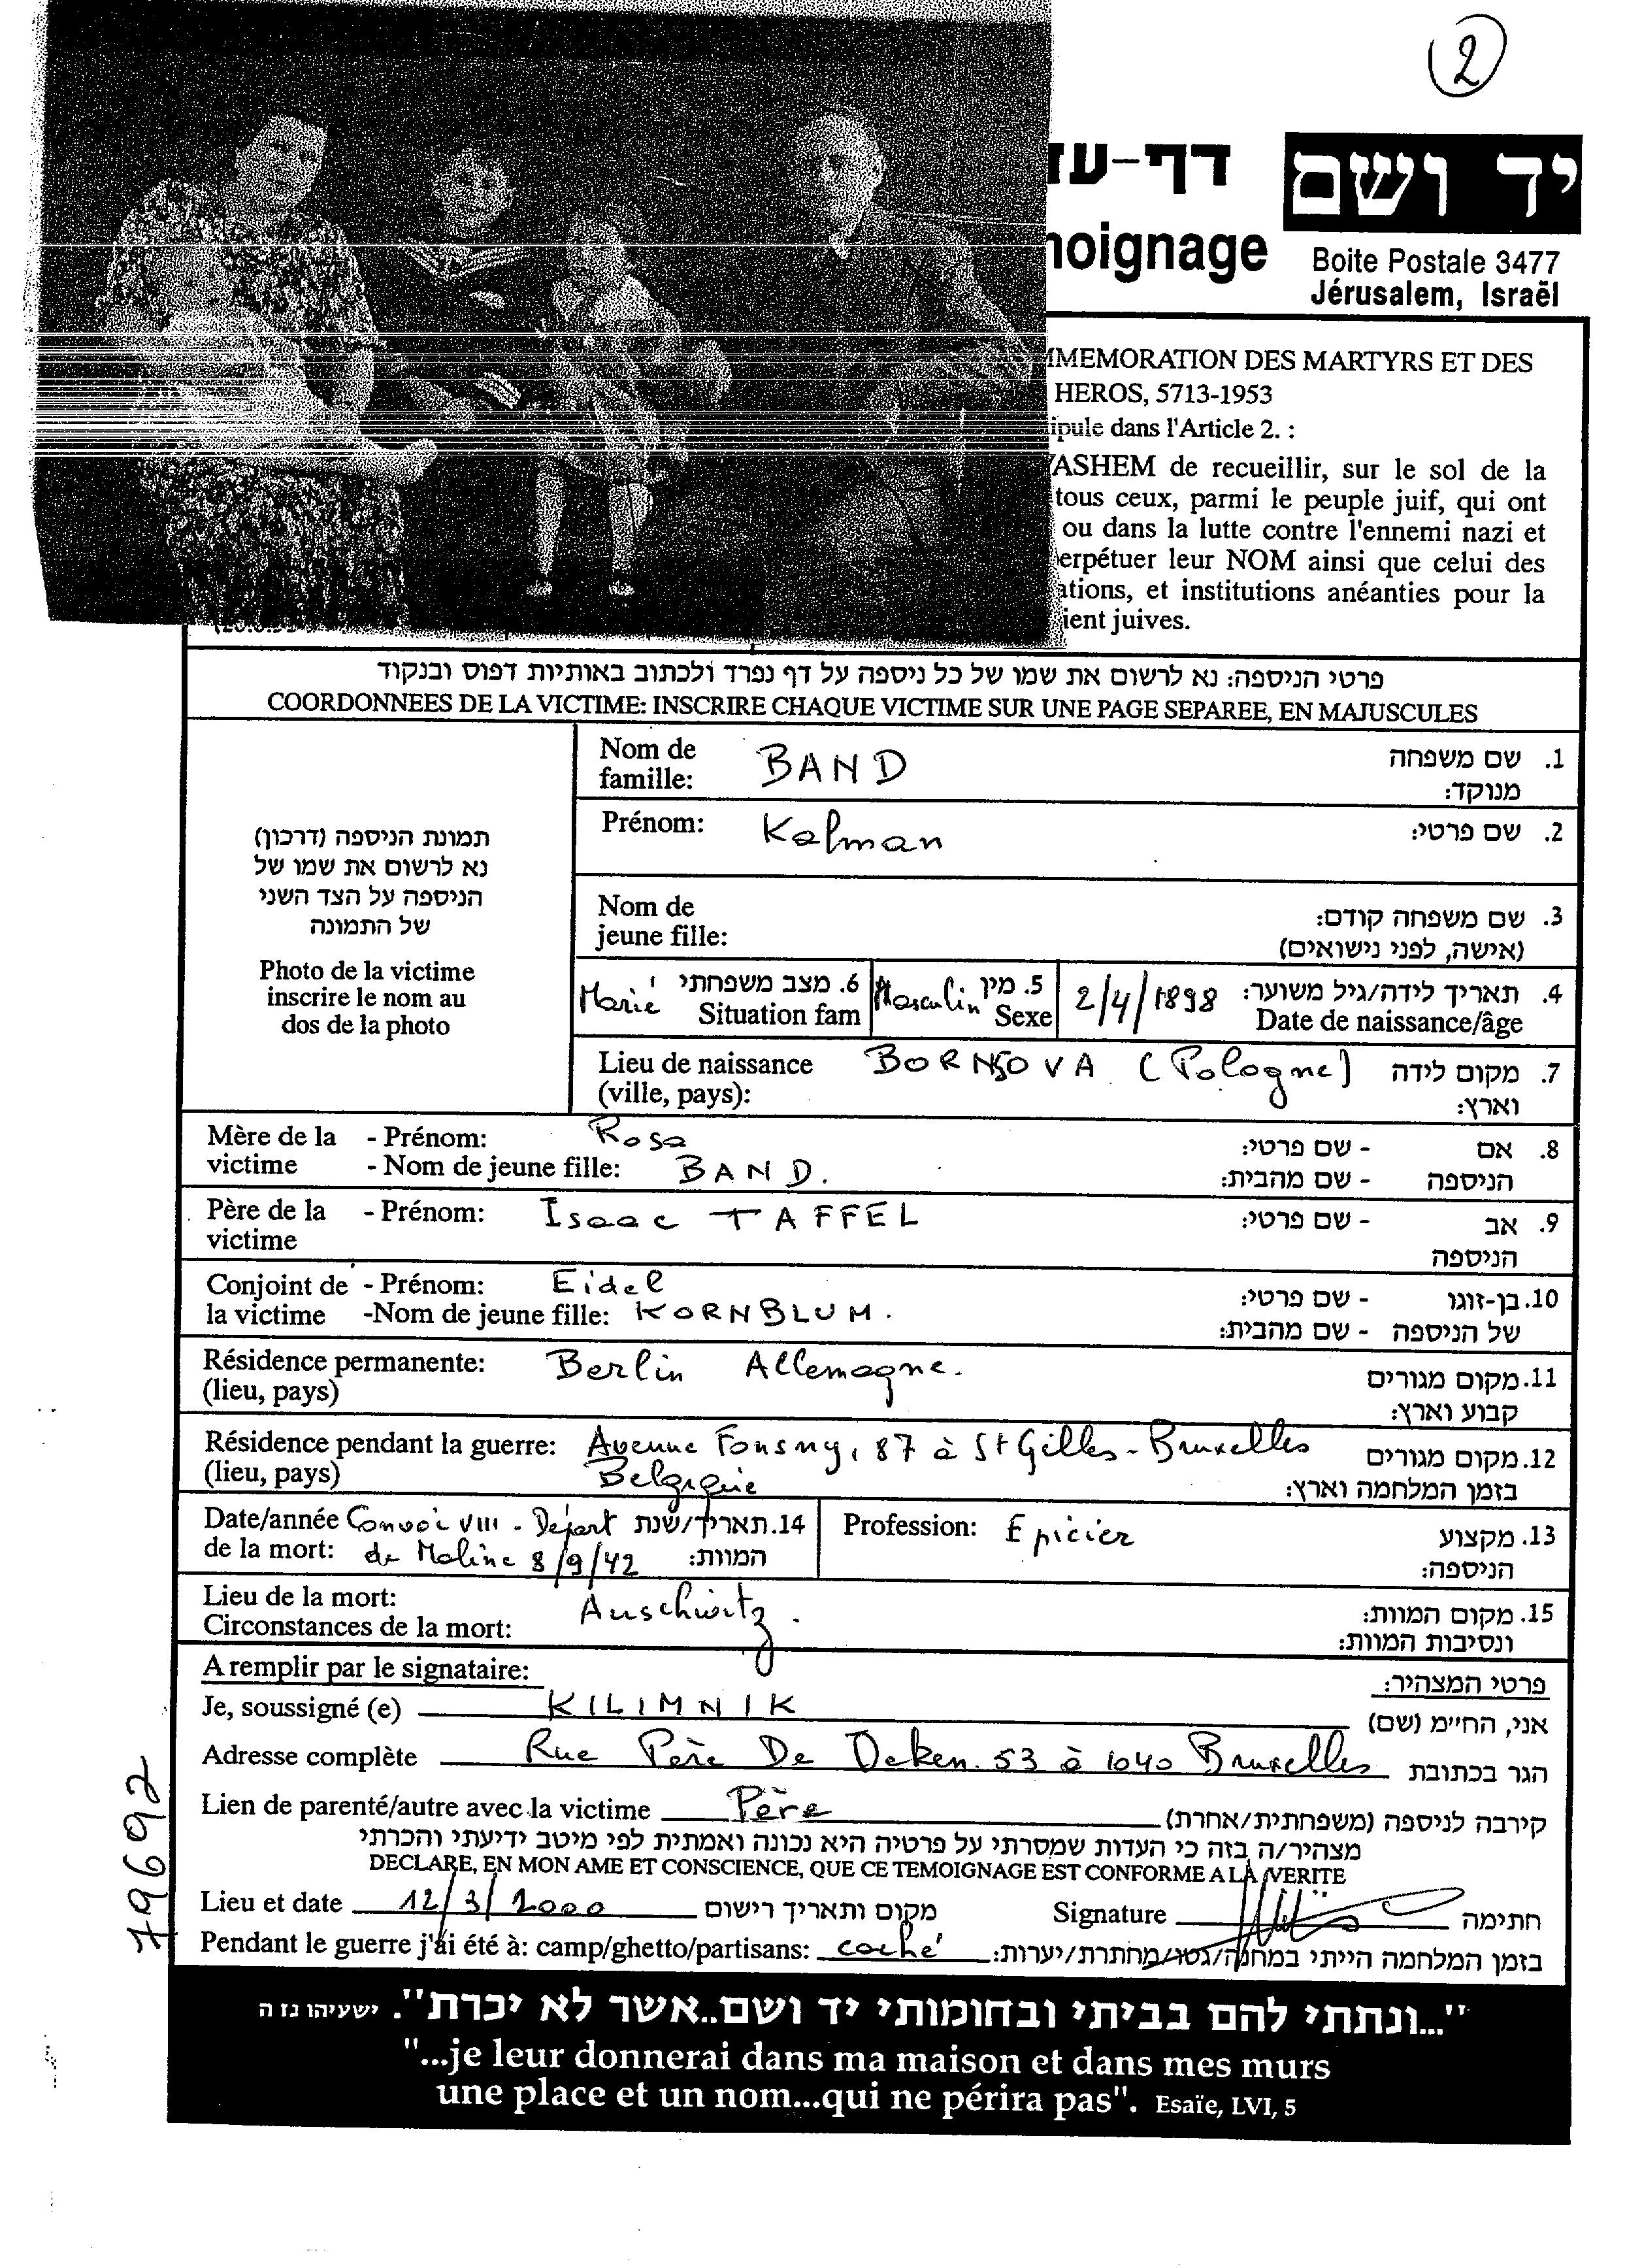 2
דף-עד
יד ושם
moignage
Boite Postale 3477
Jérusalem, Israël
MMEMORATION DES MARTYRS ET DES
HEROS, 5713-1953
ipule dans l'Article 2. :
ASHEM de recueillir, sur le sol de la
tous ceux, parmi le peuple juif, qui ont
ou dans la lutte contre l'ennemi nazi et
perpétuer leur NOM ainsi que celui des
ations, et institutions anéanties pour la
ient juives.
פרטי הניספה: נא לרשום את שמו של כל ניספה על דף נפרד ולכתוב באותיות דפוס ובנקוד
COORDONNEES DE LA VICTIME: INSCRIRE CHAQUE VICTIME SUR UNE PAGE SEPAREE, EN MAJUSCULES
תמונת הניספה (דרכון)
נא לרשום את שמו של
הניספה על הצד השני
של התמונה
Photo de la victime
inscrire le nom au
dos de la photo
Nom de famille: BAND 1. שם משפחה
מנוקד:
Prénom: Kalman 2. שם פרטי:
Nom de jeune fille: 3. שם משפחה קודם:
(אישה, לפני נישואים)
Marié 6. מצב משפחתי Masculin 5. מין 2/4/1898 4. תאריך לידה/גיל משוער:
Situation fam Sexe Date de naissance/âge
Lieu de naissance BORNSOVA (Pologne) 7. מקום לידה
(ville, pays): וארץ:
Mère de la - Prénom: Rosa - שם פרטי: 8. אם
victime - Nom de jeune fille: BAND. - שם מהבית: הניספה
Père de la - Prénom: Isaac TAFFEL - שם פרטי: 9. אב
victime הניספה
Conjoint de - Prénom: Eidel - שם פרטי: 10. בן-זוגו
la victime -Nom de jeune fille: KORNBLUM. - שם מהבית: של הניספה
Résidence permanente: Berlin Allemagne. 11. מקום מגורים
(lieu, pays) קבוע וארץ:
Résidence pendant la guerre: Avenue Fonsny, 87 à St Gilles - Bruxelles 12. מקום מגורים
(lieu, pays) Belgique בזמן המלחמה וארץ:
Date/année Convoi VIII - Départ 14. תאריך/שנת Profession: Epicier 13. מקצוע
de la mort: de Maline 8/9/42 המוות: הניספה:
Lieu de la mort: Auschwitz. 15. מקום המוות:
Circonstances de la mort: ונסיבות המוות:
A remplir par le signataire: פרטי המצהיר:
Je, soussigné (e) KILIMNIK אני, החיימ (שם)
Adresse complète Rue Père De Deken. 53 à 1040 Bruxelles הגר בכתובת
Lien de parenté/autre avec la victime Père קירבה לניספה (משפחתית/אחרת)
מצהיר/ה בזה כי העדות שמסרתי על פרטיה היא נכונה ואמתית לפי מיטב ידיעתי והכרתי
DECLARE, EN MON AME ET CONSCIENCE, QUE CE TEMOIGNAGE EST CONFORME A LA VERITE
Lieu et date 12/3/2000 מקום ותאריך רישום Signature חתימה
Pendant le guerre j'ai été à: camp/ghetto/partisans: caché בזמן המלחמה הייתי במחנה/גטו/מחתרת/יערות:
79692
"...ונתתי להם בביתי ובחומותי יד ושם..אשר לא יכרת". ישעיהו נז ה
"...je leur donnerai dans ma maison et dans mes murs
une place et un nom...qui ne périra pas". Esaïe, LVI, 5